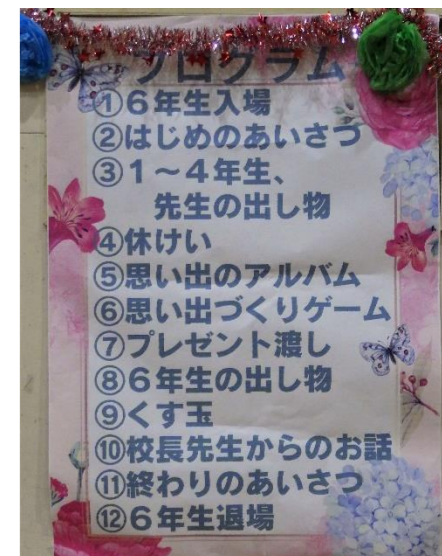 プログラム
①6年生入場
②はじめのあいさつ
③1～4年生、
先生の出し物
④休けい
⑤思い出のアルバム
⑥思い出づくりゲーム
⑦プレゼント渡し
⑧6年生の出し物
⑨くす玉
⑩校長先生からのお話
⑪終わりのあいさつ
⑫6年生退場